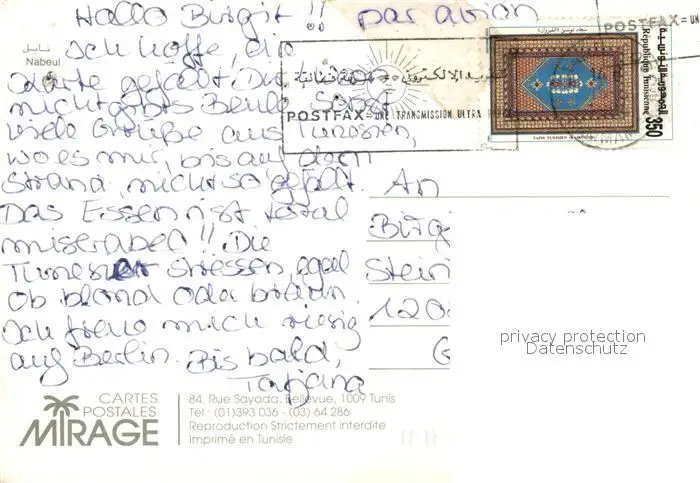 Hallo Birgit!! par avion
نابل
Nabeul
ich hoffe die
Karte gefällt Dir
nicht
viele Grüße aus Tunesien,
wo es mir, bis auf den
Strand nicht so gefällt.
Das Essen ist total
miserabel!! Die
Tuneser stressen, egal
ob blond oda braun.
Ich freue mich riesig
auf Berlin. Bis bald,
Tatjana
POSTFAX = UN
POSTFAX = UNE TRANSMISSION ULTRA
République Tunisienne
350
An
Birg
Stein
120
G
privacy protection
Datenschutz
CARTES
POSTALES
MIRAGE
84, Rue Sayada, Bellevue, 1009 Tunis
Tél.: (01)393 036 - (03) 64 286
Reproduction Strictement interdite
Imprimé en Tunisie